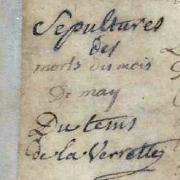 Sepultures
des
morts du mois
De may
Du tems
de la Verrette